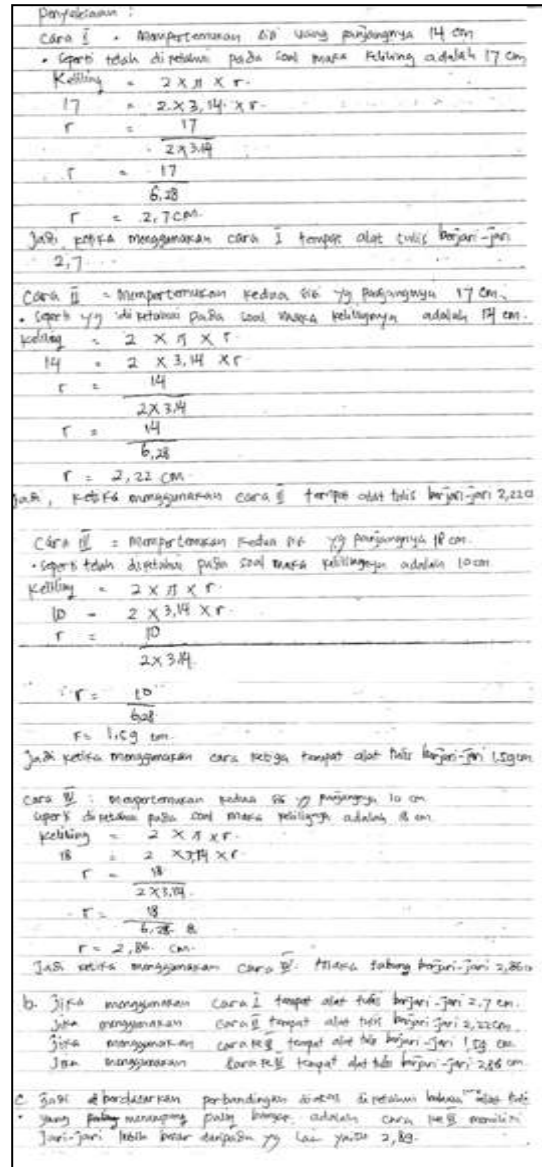 Penyelesaian :
Cara I . Mempertemukan sisi yang panjangnya 14 cm
• Seperti telah di ketahui pada soal maka keliling adalah 17 cm
Keliling = 2 x π x r.
17 = 2 x 3,14 x r.
r = 17
2 x 3.14
r = 17
6,28
r = 2,7 cm.
Jadi, ketika menggunakan cara I tempat alat tulis berjari-jari
2,7
Cara II = Mempertemukan kedua sisi yg panjangnya 17 cm.
• Seperti yg di ketahui pada soal maka kelilingnya adalah 14 cm.
Keliling = 2 x π x r.
14 = 2 x 3,14 x r
r = 14
2 x 3.14
r = 14
6,28
r = 2,22 cm
Jadi, ketika menggunakan cara II tempat alat tulis berjari-jari 2,22
Cara III = Mempertemukan kedua sisi yg panjangnya 18 cm.
• Seperti telah diketahui pada soal maka kelilingnya adalah 10 cm
Keliling = 2 x π x r.
10 = 2 x 3,14 x r.
r = 10
2 x 3.14.
r = 10
6,28
r = 1,59 cm.
Jadi ketika menggunakan cara ketiga tempat alat tulis berjari-jari 1,59 cm
Cara IV : Mempertemukan kedua sisi yg panjangnya 10 cm
Seperti diketahui pada soal maka kelilingnya adalah 18 cm.
Keliling = 2 x π x r.
18 = 2 x 3,14 x r
r = 18
2 x 3,14.
r = 18
6,28
r = 2,86. cm.
Jadi ketika menggunakan cara IV. Maka tabung berjari-jari 2,86
b. Jika menggunakan cara I tempat alat tulis berjari-jari 2,7 cm.
Jika menggunakan cara II tempat alat tulis berjari-jari 2,22 cm.
Jika menggunakan cara ke III tempat alat tulis berjari-jari 1,59 cm.
Jika menggunakan cara ke IV tempat alat tulis berjari-jari 2,86 cm
c Jadi berdasarkan perbandingan diketahui bahwa alat tulis
yang menampung paling banyak adalah cara ke IV memiliki
Jari-jari lebih besar daripada yg lain yaitu 2,89.